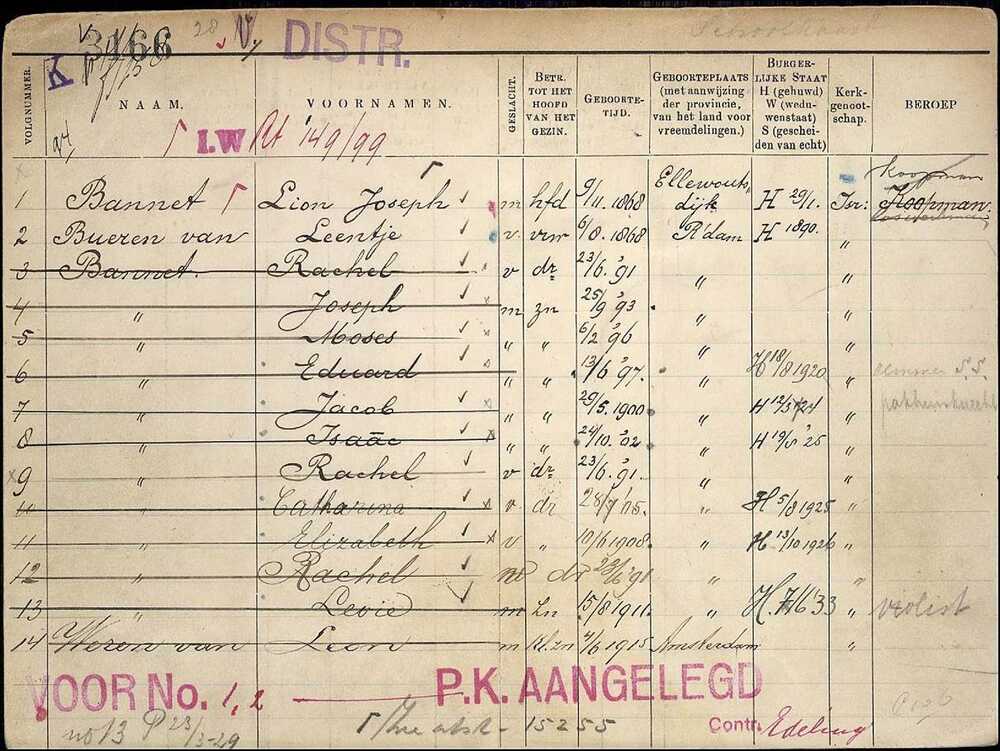 K 3166 28 V. DISTR. Schoolkaart
VOLGNUMMER. NAAM. VOORNAMEN. GESLACHT. BETR. TOT HET HOOFD VAN HET GEZIN. GEBOORTE-TIJD. GEBOORTEPLAATS (met aanwijzing der provincie, van het land voor vreemdelingen.) BURGER-LIJKE STAAT H (gehuwd) W (wedu-wenstaat) S (geschei-den van echt) Kerk-genoot-schap. BEROEP
I.W Rt 149/99
1 Bannet Lion Joseph m hfd 9/11. 1868 Ellewouts-dijk H 29/1. Isr: Koopman Koopman.
2 Bueren van Leentje v. vrw 6/8. 1868 R'dam H 1890. "
3 Bannet. Rachel v dr 23/6. '91 " "
4 " Joseph m zn 25/9 '93 " "
5 " Moses " " 6/2 '96 " "
6 " Eduard " " 13/6 '97. " H 18/8 1920 " S.S.
7 " Jacob " " 29/5. 1900 " H 12/3 '24 " pakhuisknecht
8 " Isaäc " " 24/10. '02 " H 19/8 '25 "
9 " Rachel v dr 23/6. '91. " "
11 " Catharina v dr 28/7 '05. " H 5/8 1925 "
11 " Elizabeth v " 10/6 1908. " H 13/10 1926 "
12 " Rachel m dr 23/6 '91 "
13 " Levie m zn 15/8 1911 " H 7/6 '33 " violist
14 Weren van Leon m kl.zn 4/6 1915 Amsterdam "
VOOR No. 1, 2 P.K. AANGELEGD
no 13 P 23/3-29 15255 Contr. Edeling